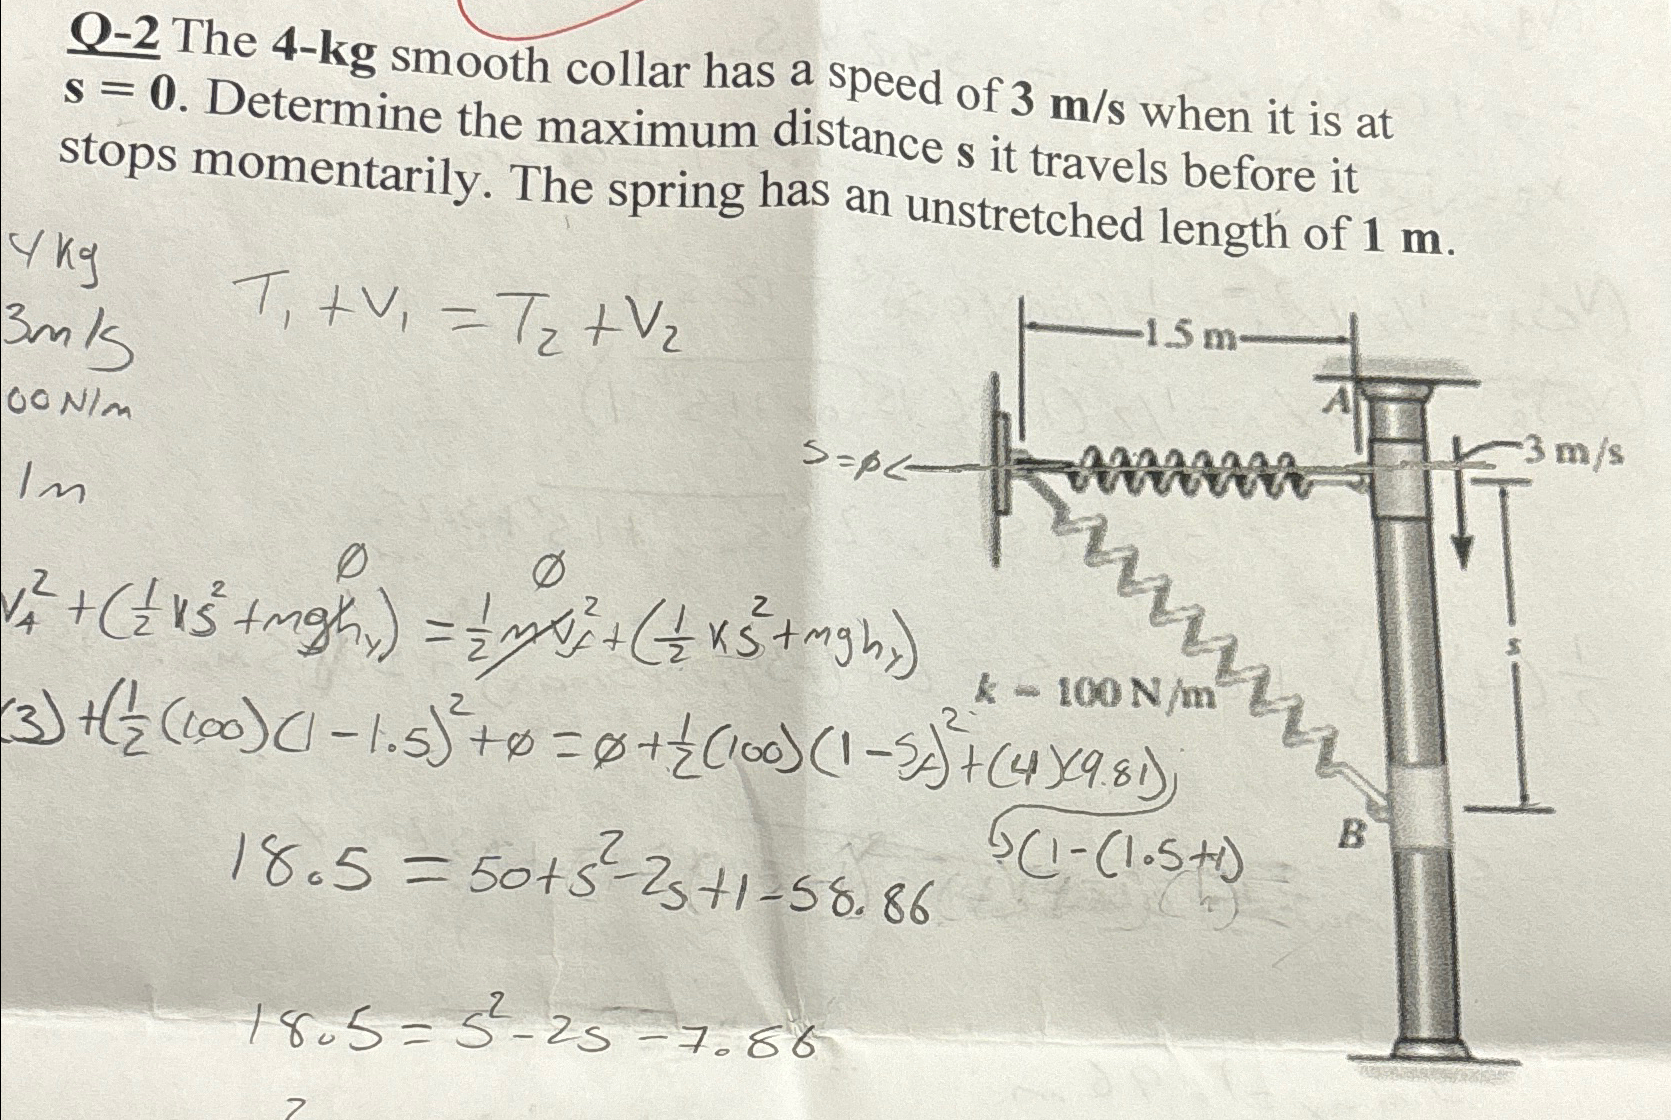 Q-2 The 4-kg smooth collar has a speed of 3 m/s when it is at
s = 0. Determine the maximum distance s it travels before it
stops momentarily. The spring has an unstretched length of 1 m.
4 kg
3m/s
00 N/m
1m
T₁ + V₁ = T₂ + V₂
1.5 m
A
3 m/s
S=∅
s
k = 100 N/m
B
∅ ∅
V_A² + (1/2 KS² + mgh_y) = 1/2 mV_f² + (1/2 KS² + mgh_y)
(3) + (1/2 (100)(1-1.5)² + ∅ = ∅ + 1/2 (100)(1-S_f)² + (4)(9.81)
(1-(1.5+1)
18.5 = 50+s²-2s+1-58.86
18.5 = s²-2s-7.86
2